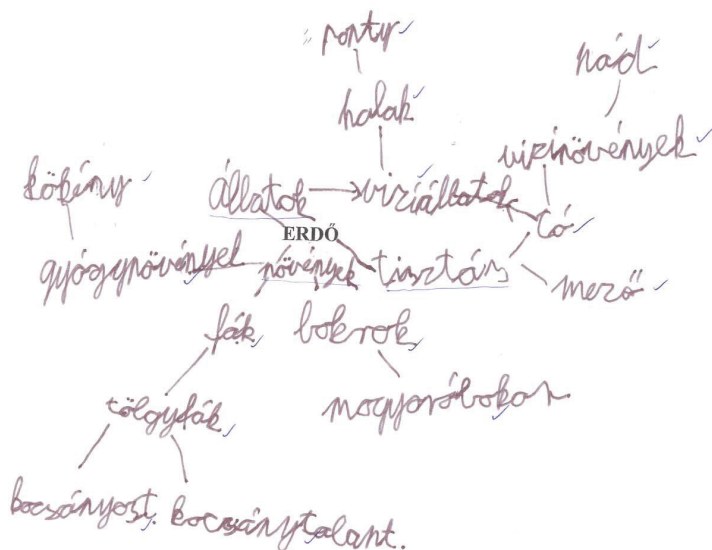 ponty
nád
halak
vizinövények
kökény
állatok
viziállatok
tó
ERDŐ
gyógynövényel
növények
tisztás
mező
fák
bokrok
tölgyfák
mogyoróbokor.
kocsányost. kocsánytalant.